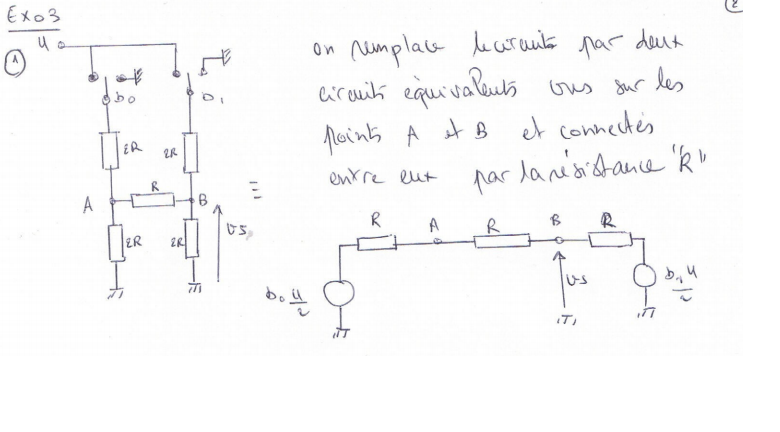 Exo3
2
u
1
on remplace le circuit par deux
circuits équivalents vus sur les
points A et B et connectés
entre eux par la résistance "R"
b0 b1
2R 2R
A R B
≡
2R 2R vs
R A R B R
b0 u/2 vs b1 u/2